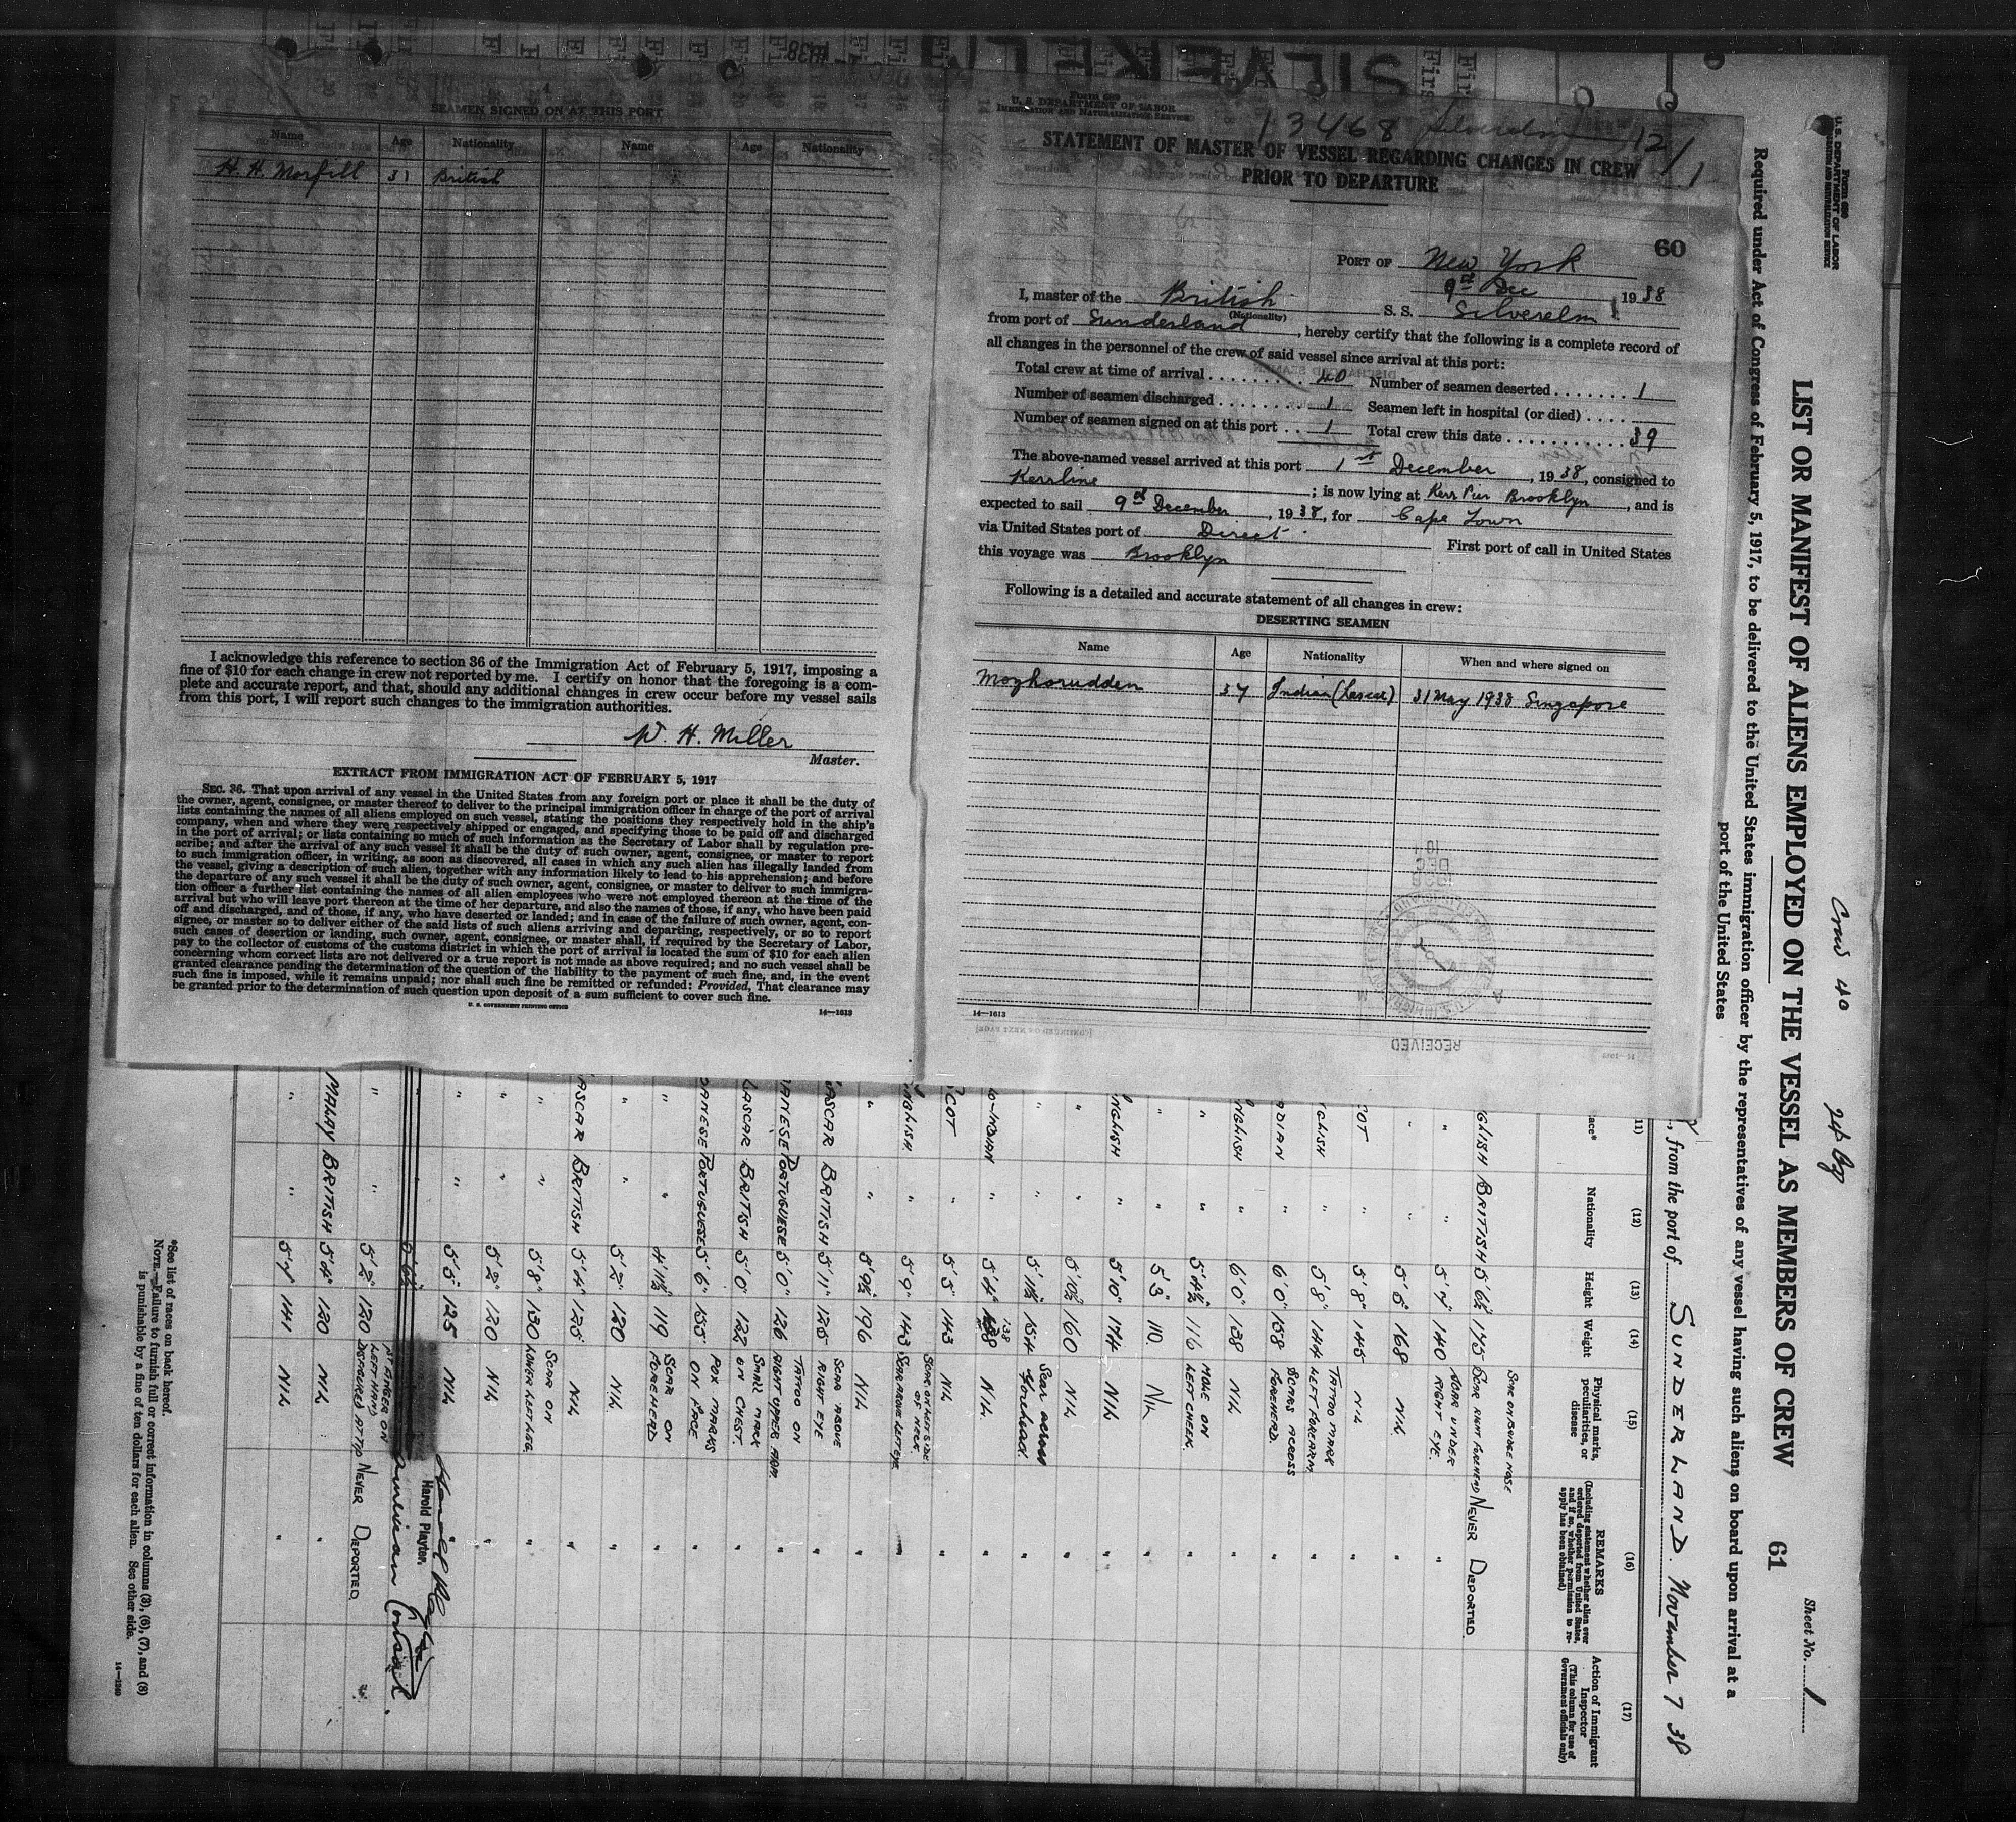 4
SEAMEN SIGNED ON AT THIS PORT
Name Age Nationality Name Age Nationality
H. H. Morfill 31 British
I acknowledge this reference to section 36 of the Immigration Act of February 5, 1917, imposing a
fine of $10 for each change in crew not reported by me. I certify on honor that the foregoing is a com-
plete and accurate report, and that, should any additional changes in crew occur before my vessel sails
from this port, I will report such changes to the immigration authorities.
W. H. Miller
Master.
EXTRACT FROM IMMIGRATION ACT OF FEBRUARY 5, 1917
SEC. 36. That upon arrival of any vessel in the United States from any foreign port or place it shall be the duty of
the owner, agent, consignee, or master thereof to deliver to the principal immigration officer in charge of the port of arrival
lists containing the names of all aliens employed on such vessel, stating the positions they respectively hold in the ship's
company, when and where they were respectively shipped or engaged, and specifying those to be paid off and discharged
in the port of arrival; or lists containing so much of such information as the Secretary of Labor shall by regulation pre-
scribe; and after the arrival of any such vessel it shall be the duty of such owner, agent, consignee, or master to report
to such immigration officer, in writing, as soon as discovered, all cases in which any such alien has illegally landed from
the vessel, giving a description of such alien, together with any information likely to lead to his apprehension; and before
the departure of any such vessel it shall be the duty of such owner, agent, consignee, or master to deliver to such immigra-
tion officer a further list containing the names of all alien employees who were not employed thereon at the time of the
arrival but who will leave port thereon at the time of her departure, and also the names of those, if any, who have been paid
off and discharged, and of those, if any, who have deserted or landed; and in case of the failure of such owner, agent, con-
signee, or master so to deliver either of the said lists of such aliens arriving and departing, respectively, or so to report
such cases of desertion or landing, such owner, agent, consignee, or master shall, if required by the Secretary of Labor,
pay to the collector of customs of the customs district in which the port of arrival is located the sum of $10 for each alien
concerning whom correct lists are not delivered or a true report is not made as above required; and no such vessel shall be
granted clearance pending the determination of the question of the liability to the payment of such fine, and, in the event
such fine is imposed, while it remains unpaid; nor shall such fine be remitted or refunded: Provided, That clearance may
be granted prior to the determination of such question upon deposit of a sum sufficient to cover such fine.
U. S. GOVERNMENT PRINTING OFFICE 14—1613
Form 689
U. S. DEPARTMENT OF LABOR
IMMIGRATION AND NATURALIZATION SERVICE
13468 Silverelm 12/1
STATEMENT OF MASTER OF VESSEL REGARDING CHANGES IN CREW
PRIOR TO DEPARTURE
60
PORT OF New York
9th Dec, 1938
I, master of the British S. S. Silverelm
(Nationality)
from port of Sunderland, hereby certify that the following is a complete record of
all changes in the personnel of the crew of said vessel since arrival at this port:
Total crew at time of arrival 40 Number of seamen deserted 1
Number of seamen discharged 1 Seamen left in hospital (or died)
Number of seamen signed on at this port 1 Total crew this date 39
The above-named vessel arrived at this port 1st December, 1938, consigned to
Kerrline; is now lying at Kerr Pier Brooklyn, and is
expected to sail 9th December, 1938, for Cape Town
via United States port of Direct. First port of call in United States
this voyage was Brooklyn
Following is a detailed and accurate statement of all changes in crew:
DESERTING SEAMEN
Name Age Nationality When and where signed on
Mozharudden 37 Indian (Lascar) 31 May 1938 Singapore
14—1613
RECEIVED
Form 680
U. S. DEPARTMENT OF LABOR
IMMIGRATION AND NATURALIZATION SERVICE
Crew 40
LIST OR MANIFEST OF ALIENS EMPLOYED ON THE VESSEL AS MEMBERS OF CREW 61
Sheet No. 1
Required under Act of Congress of February 5, 1917, to be delivered to the United States immigration officer by the representatives of any vessel having such aliens on board upon arrival at a
port of the United States
, from the port of SUNDERLAND. November 7 38
(11) (12) (13) (14) (15) (16) (17)
Nationality Height Weight Physical marks, peculiarities, or disease
REMARKS (Including statement whether alien ever ordered deported from United States, and if so, whether permission to re-apply has been obtained)
Action of Immigrant Inspector (This column for use of Government officials only)
GLISH BRITISH 5'6½" 175 SCAR ON BRIDGE NOSE SCAR RIGHT FOREHEAD NEVER DEPORTED.
" " 5'7" 140 SCAR UNDER RIGHT EYE. "
" " 5'6" 168 NIL "
COT " 5'8" 145 NIL "
GLISH " 5'8" 144 TATTOO MARK LEFT FOREARM "
ADIAN " 6'0" 158 SCARS ACROSS FOREHEAD. "
NGLISH " 6'0" 138 NIL "
" " 5'4½" 116 MOLE ON LEFT CHEEK. "
" " 5'3" 110. NIL "
NGLISH " 5'10" 174 NIL "
" " 5'10½" 160 NIL "
" " 5'11½" 154 Scar across forehead. "
O-INDIAN " 5'4" 138 NIL. "
COT " 5'5" 143 NIL "
NGLISH " 5'9" 143 SCAR ON LEFT SIDE OF NECK. SCAR ABOVE LEFT EYE "
" " 5'9½" 196 NIL "
ASCAR BRITISH 5'11" 125 SCAR ABOVE RIGHT EYE "
ANESE PORTUGUESE 5'0" 126 TATTOO ON RIGHT UPPER ARM "
LASCAR BRITISH 5'0" 122 SMALL MARK ON CHEST. "
ANESE PORTUGUESE 5'6" 155 POX MARKS ON FACE "
" " 4'11½" 119 SCAR ON FOREHEAD "
" " 5'2" 120 NIL "
ASCAR BRITISH 5'4" 125 NIL "
" " 5'8" 130 SCAR ON LOWER LEFT LEG. "
" " 5'2" 120 NIL "
" " 5'5" 125 NIL
Harold Playter
Harold Playter.
American Consul.
" " 5'2" 120 1ST FINGER ON LEFT HAND DISFIGURED AT TIP NEVER DEPORTED.
MALAY BRITISH 5'4" 120 NIL "
" " 5'7" 141 NIL "
*See list of races on back hereof.
NOTE.—Failure to furnish full or correct information in columns (3), (6), (7), and (8)
is punishable by a fine of ten dollars for each alien. See other side.
14—1240